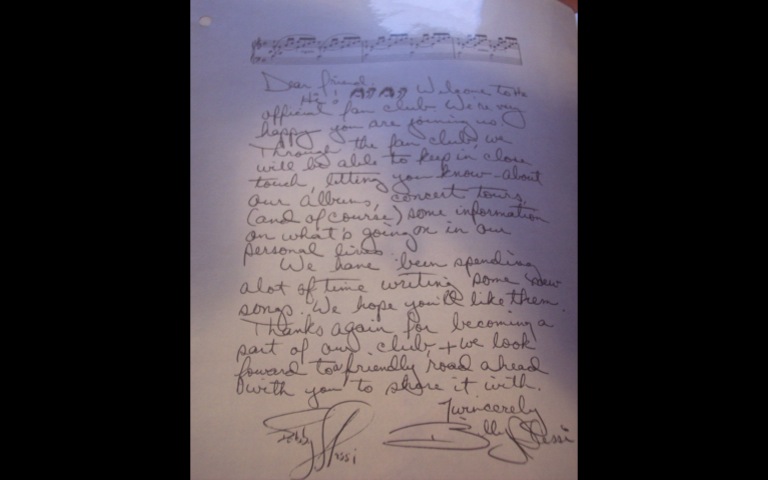 Dear friend,
Hi! Welcome to the
official fan club. We're very
happy you are joining us.
Through the fan club, we
will be able to keep in close
touch, letting you know about
our albums, concert tours,
(and of course) some information
on what's going on in our
personal lives.
We have been spending
alot of time writing some new
songs. We hope you'll like them.
Thanks again for becoming a
part of our club, + we look
foward to a friendly road ahead
with you to share it with.
Twincerely
Bobby Alessi Billy Alessi